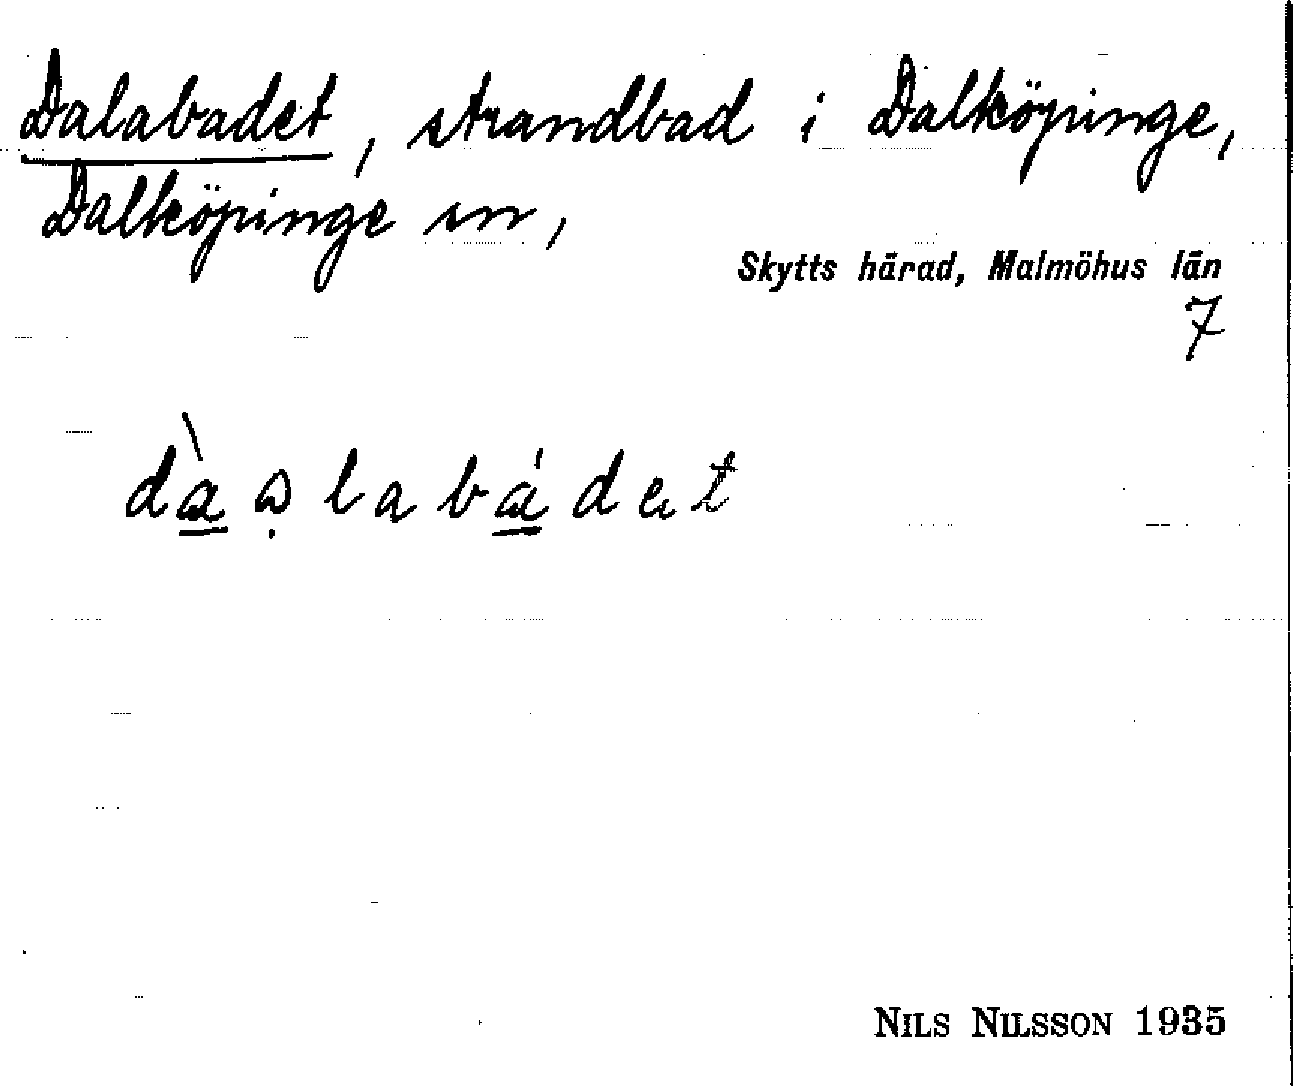 Dalabadet, strandbad i Dalköpinge,
Dalköpinge sn,
Skytts härad, Malmöhus län
7
Nils Nilsson 1935